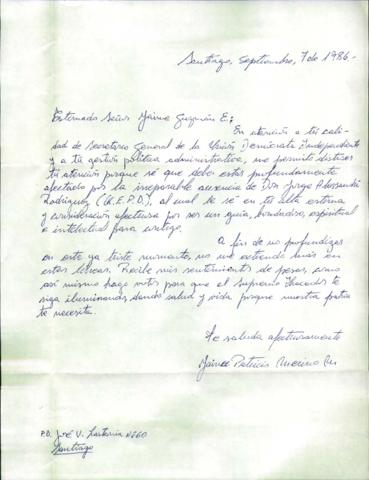 Santiago, Septiembre, 7 de 1986.-
Estimado Señor Jaime Guzmán E:
En atención a tú cali-
dad de Secretario General de la Unión Demócrata Independiente
y a tú gestión política administrativa, me permito distraer
tú atención porque sé que debes estar profundamente
afectado por la irreparable ausencia de Don Jorge Alessandri
Rodríguez (Q.E.P.D.), al cual le sé en tú alta estima
y consideración afectuosa por ser un guía, bondadoso, espiritual
e intelectual para contigo.
A fin de no profundizar
en este ya triste momento, no me extiendo más en
estas letras. Recibe mis sentimientos de pesar, como
así mismo hago votos para que el Supremo Hacedor te
siga iluminando dando salud y vida porque nuestra patria
te necesita.
Te saluda afectuosamente
Patricio Merino
P.D. José V. Lastarria
Santiago